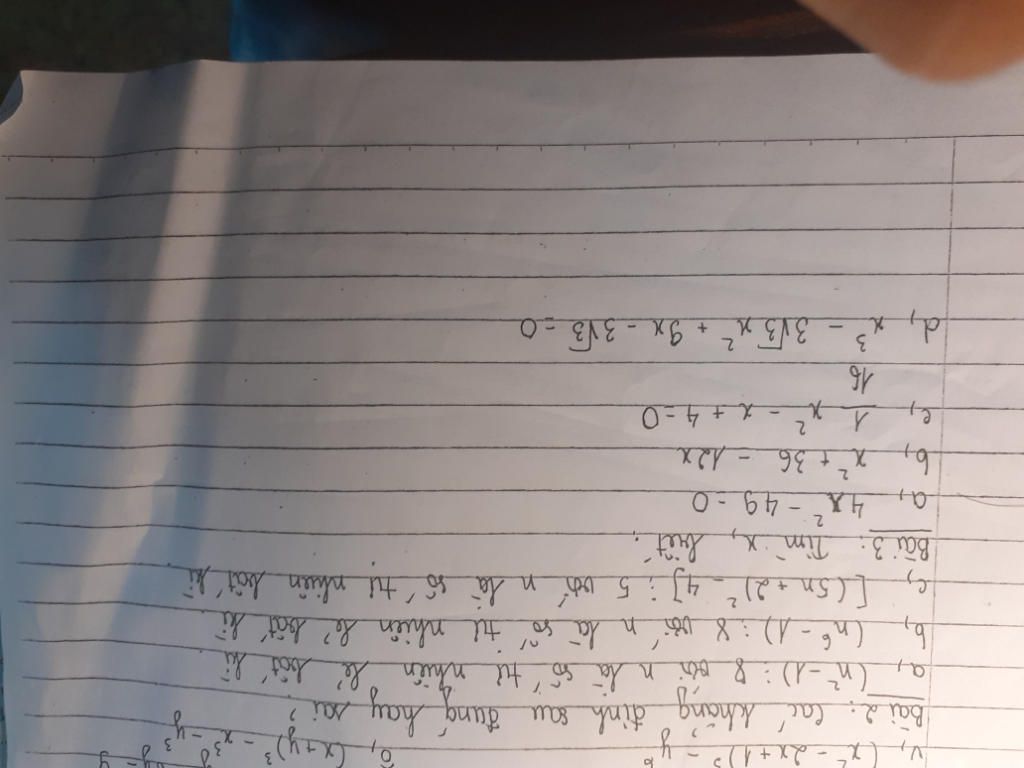 v, (x² - 2x + 1)³ - y⁶ õ, (x + y)³ - x³ - y³
Bài 2: Các khẳng định sau đúng hay sai?
a, (n² - 1) ⋮ 8 với n là số tự nhiên lẻ bất kì
b, (n⁶ - 1) ⋮ 8 với n là số tự nhiên lẻ bất kì
c, [(5n + 2)² - 4] ⋮ 5 với n là số tự nhiên bất kì
Bài 3: Tìm x, biết:
a, 4x² - 49 = 0
b, x² + 36 = 12x
c, 1/16 x² - x + 4 = 0
d, x³ - 3√3x² + 9x - 3√3 = 0